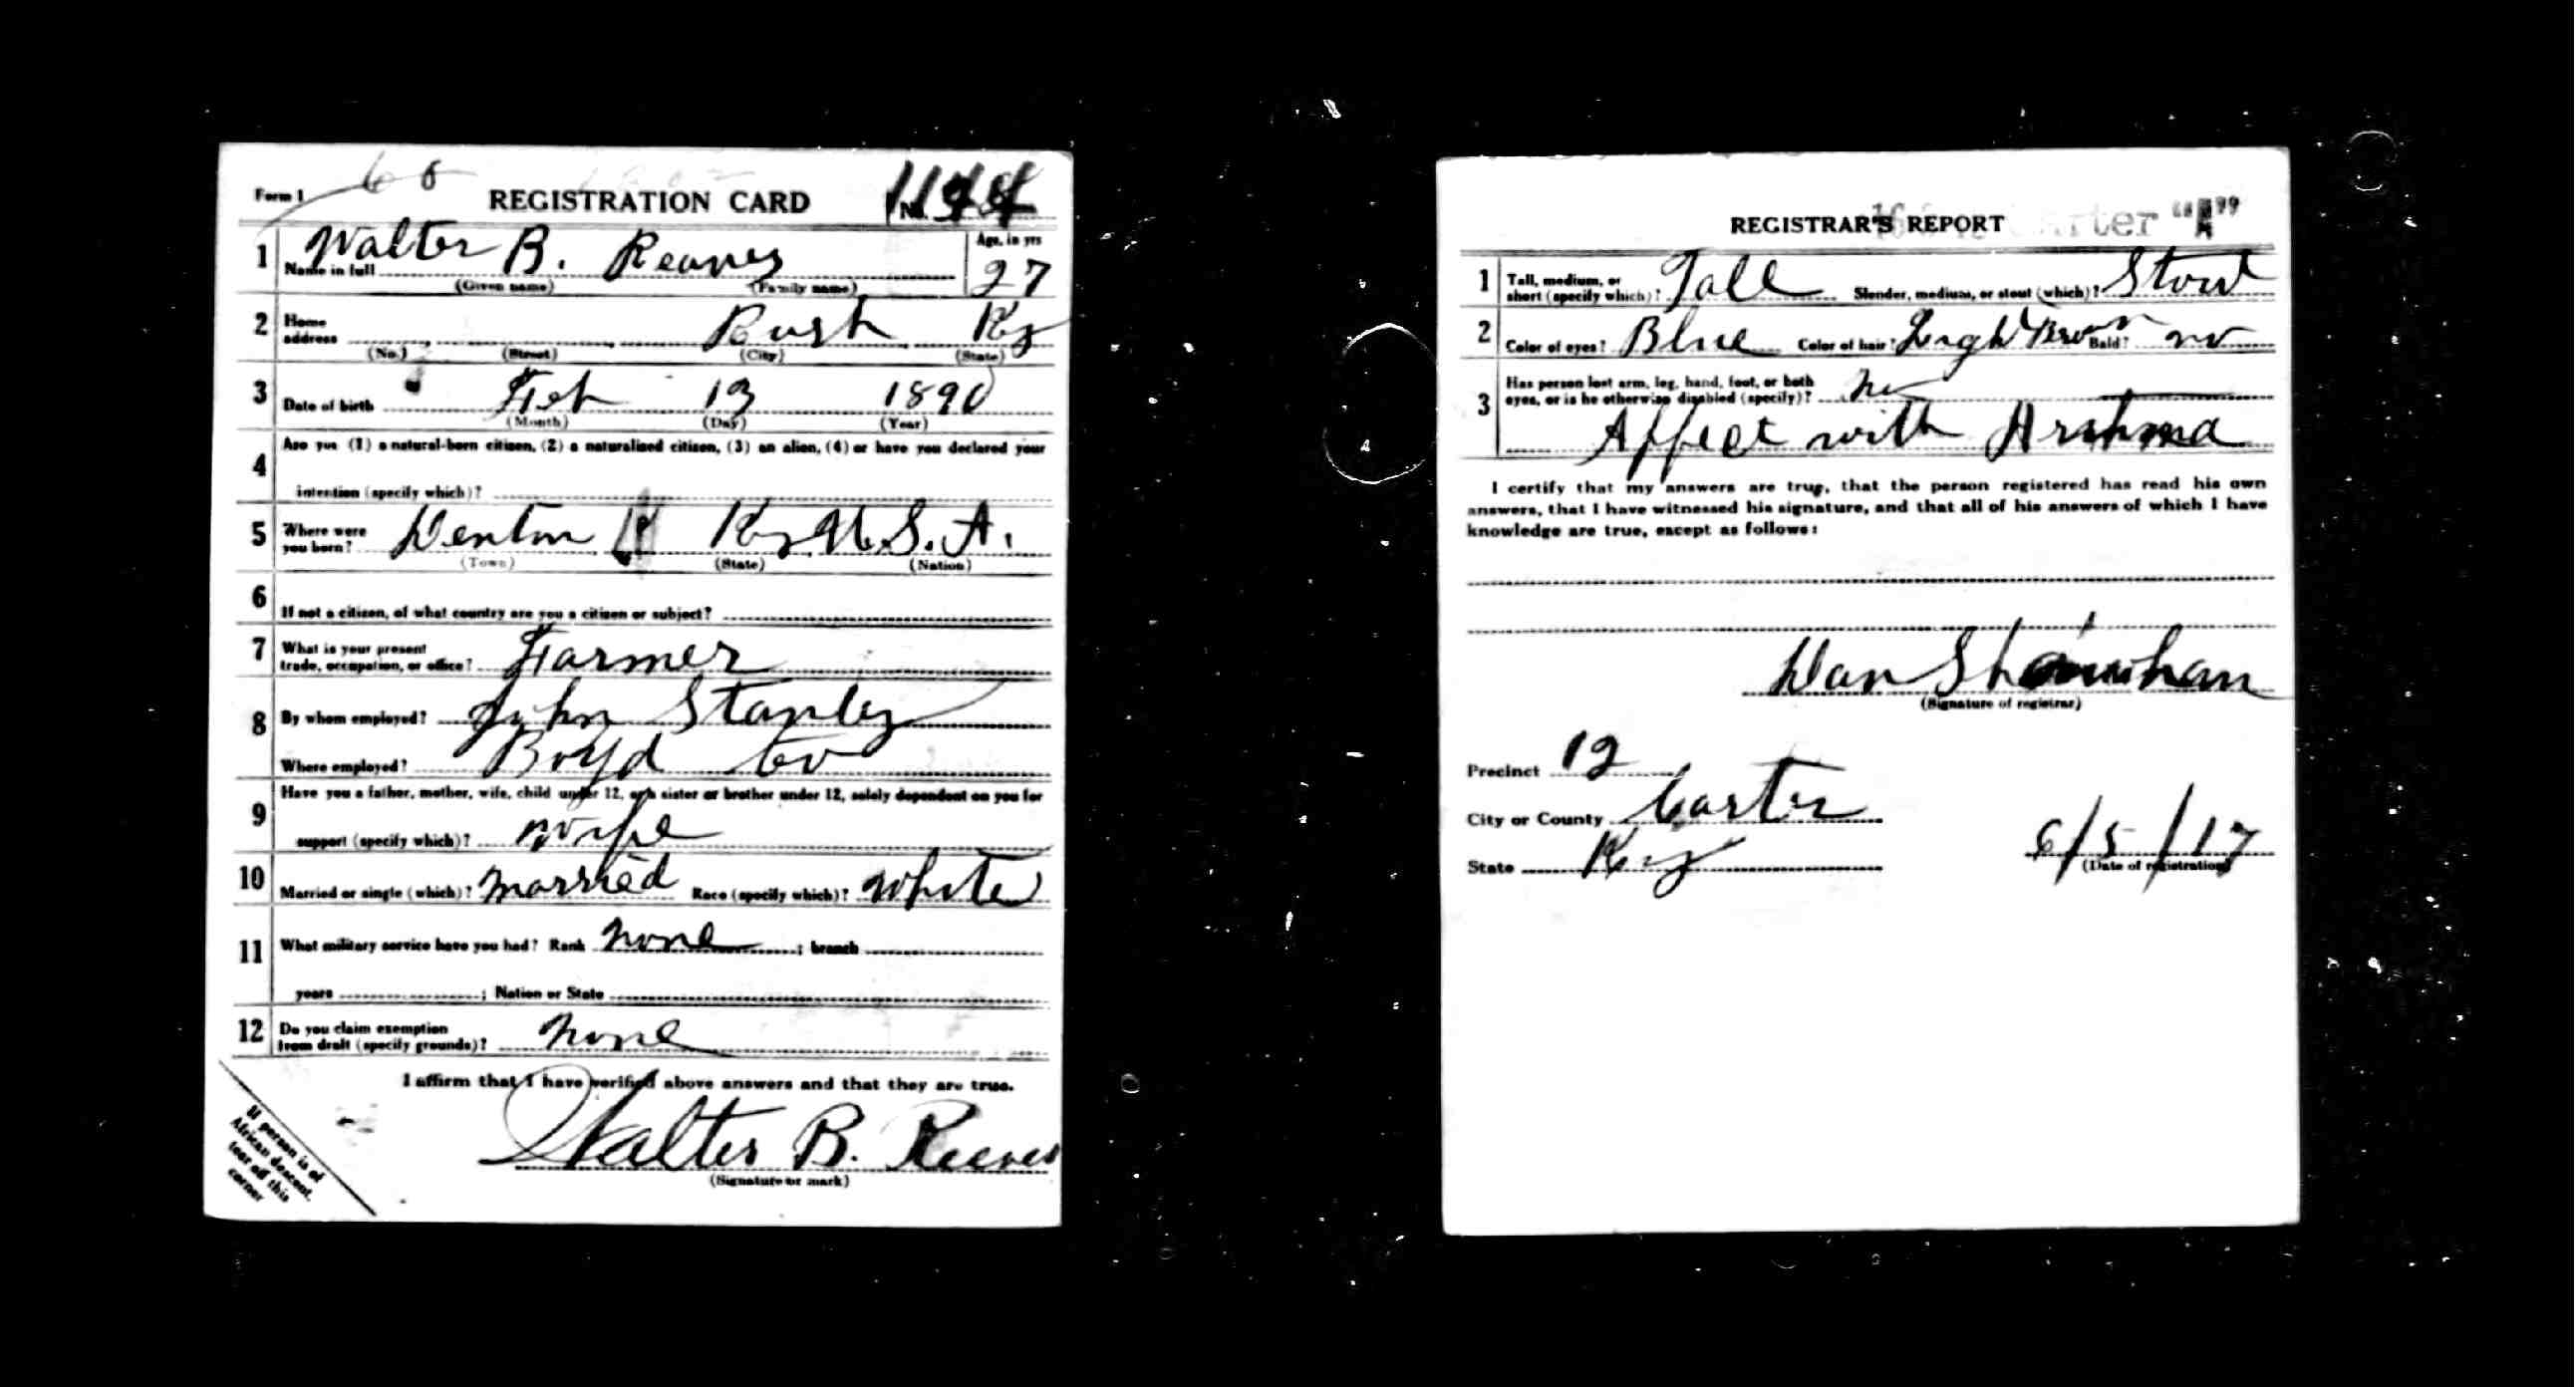 Form 1 REGISTRATION CARD No.
1 Name in full Walter B. Reaves Age, in yrs 27
(Given name) (Family name)
2 Home address Rush Ky
(No.) (Street) (City) (State)
3 Date of birth Feb 13 1890
(Month) (Day) (Year)
4 Are you (1) a natural-born citizen, (2) a naturalized citizen, (3) an alien, (4) or have you declared your
intention (specify which)?
5 Where were you born? Denton Ky U.S.A.
(Town) (State) (Nation)
6 If not a citizen, of what country are you a citizen or subject?
7 What is your present trade, occupation, or office? Farmer
8 By whom employed? John Stanley
Where employed? Boyd Co
9 Have you a father, mother, wife, child under 12, or a sister or brother under 12, solely dependent on you for
support (specify which)? wife
10 Married or single (which)? married Race (specify which)? white
11 What military service have you had? Rank none ; branch
years ; Nation or State
12 Do you claim exemption from draft (specify grounds)? none
I affirm that I have verified above answers and that they are true.
Walter B. Reeves
(Signature or mark)
If person is of
African descent,
tear off this
corner
REGISTRAR'S REPORT
1 Tall, medium, or short (specify which)? Tall Slender, medium, or stout (which)? Stout
2 Color of eyes? Blue Color of hair? Light Brown Bald? no
3 Has person lost arm, leg, hand, foot, or both
eyes, or is he otherwise disabled (specify)? no
Affect with Arshma
I certify that my answers are true, that the person registered has read his own
answers, that I have witnessed his signature, and that all of his answers of which I have
knowledge are true, except as follows:
Dan
(Signature of registrar)
Precinct 12
City or County Carter
State Ky
6/5/17
(Date of registration)